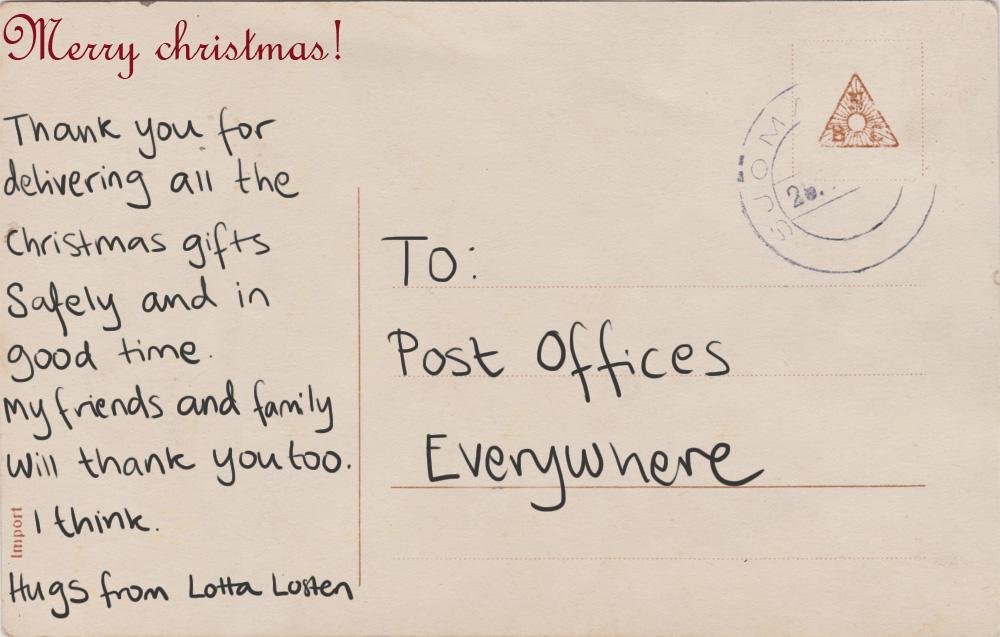 Merry christmas!
Thank you for
delivering all the
Christmas gifts
Safely and in
good time.
My friends and family
will thank you too.
I think.
Hugs from Lotta Losten
Import
To:
Post Offices
Everywhere
SJOM